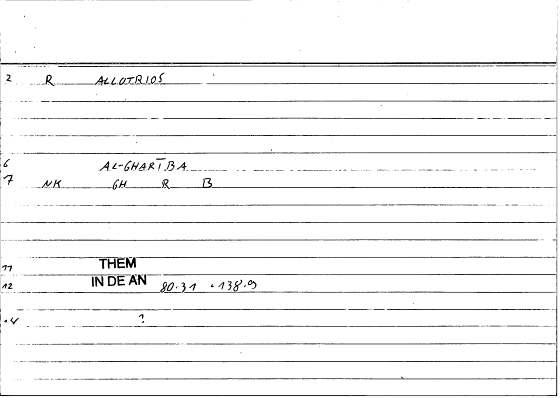 2 R ALLOTRIOS
6 AL-GHARĪBA
7 NK GH R B
11 THEM
12 IN DE AN 80.31 .138.9
.4 ?